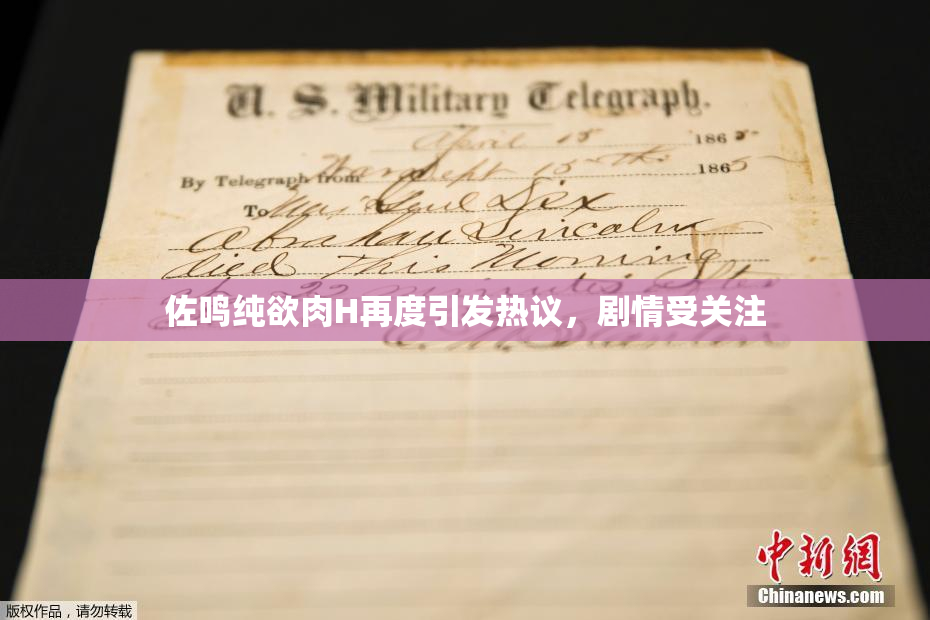 U. S. Military Telegraph.
April 15 1865
By Telegraph from War Dept 15th 1865
To Maj Genl Dix
Abraham Lincoln
died This Morning
at 22 minutes after
佐鸣纯欲肉H再度引发热议，剧情受关注
E. M. Stanton
中新网
Chinanews.com
版权作品，请勿转载